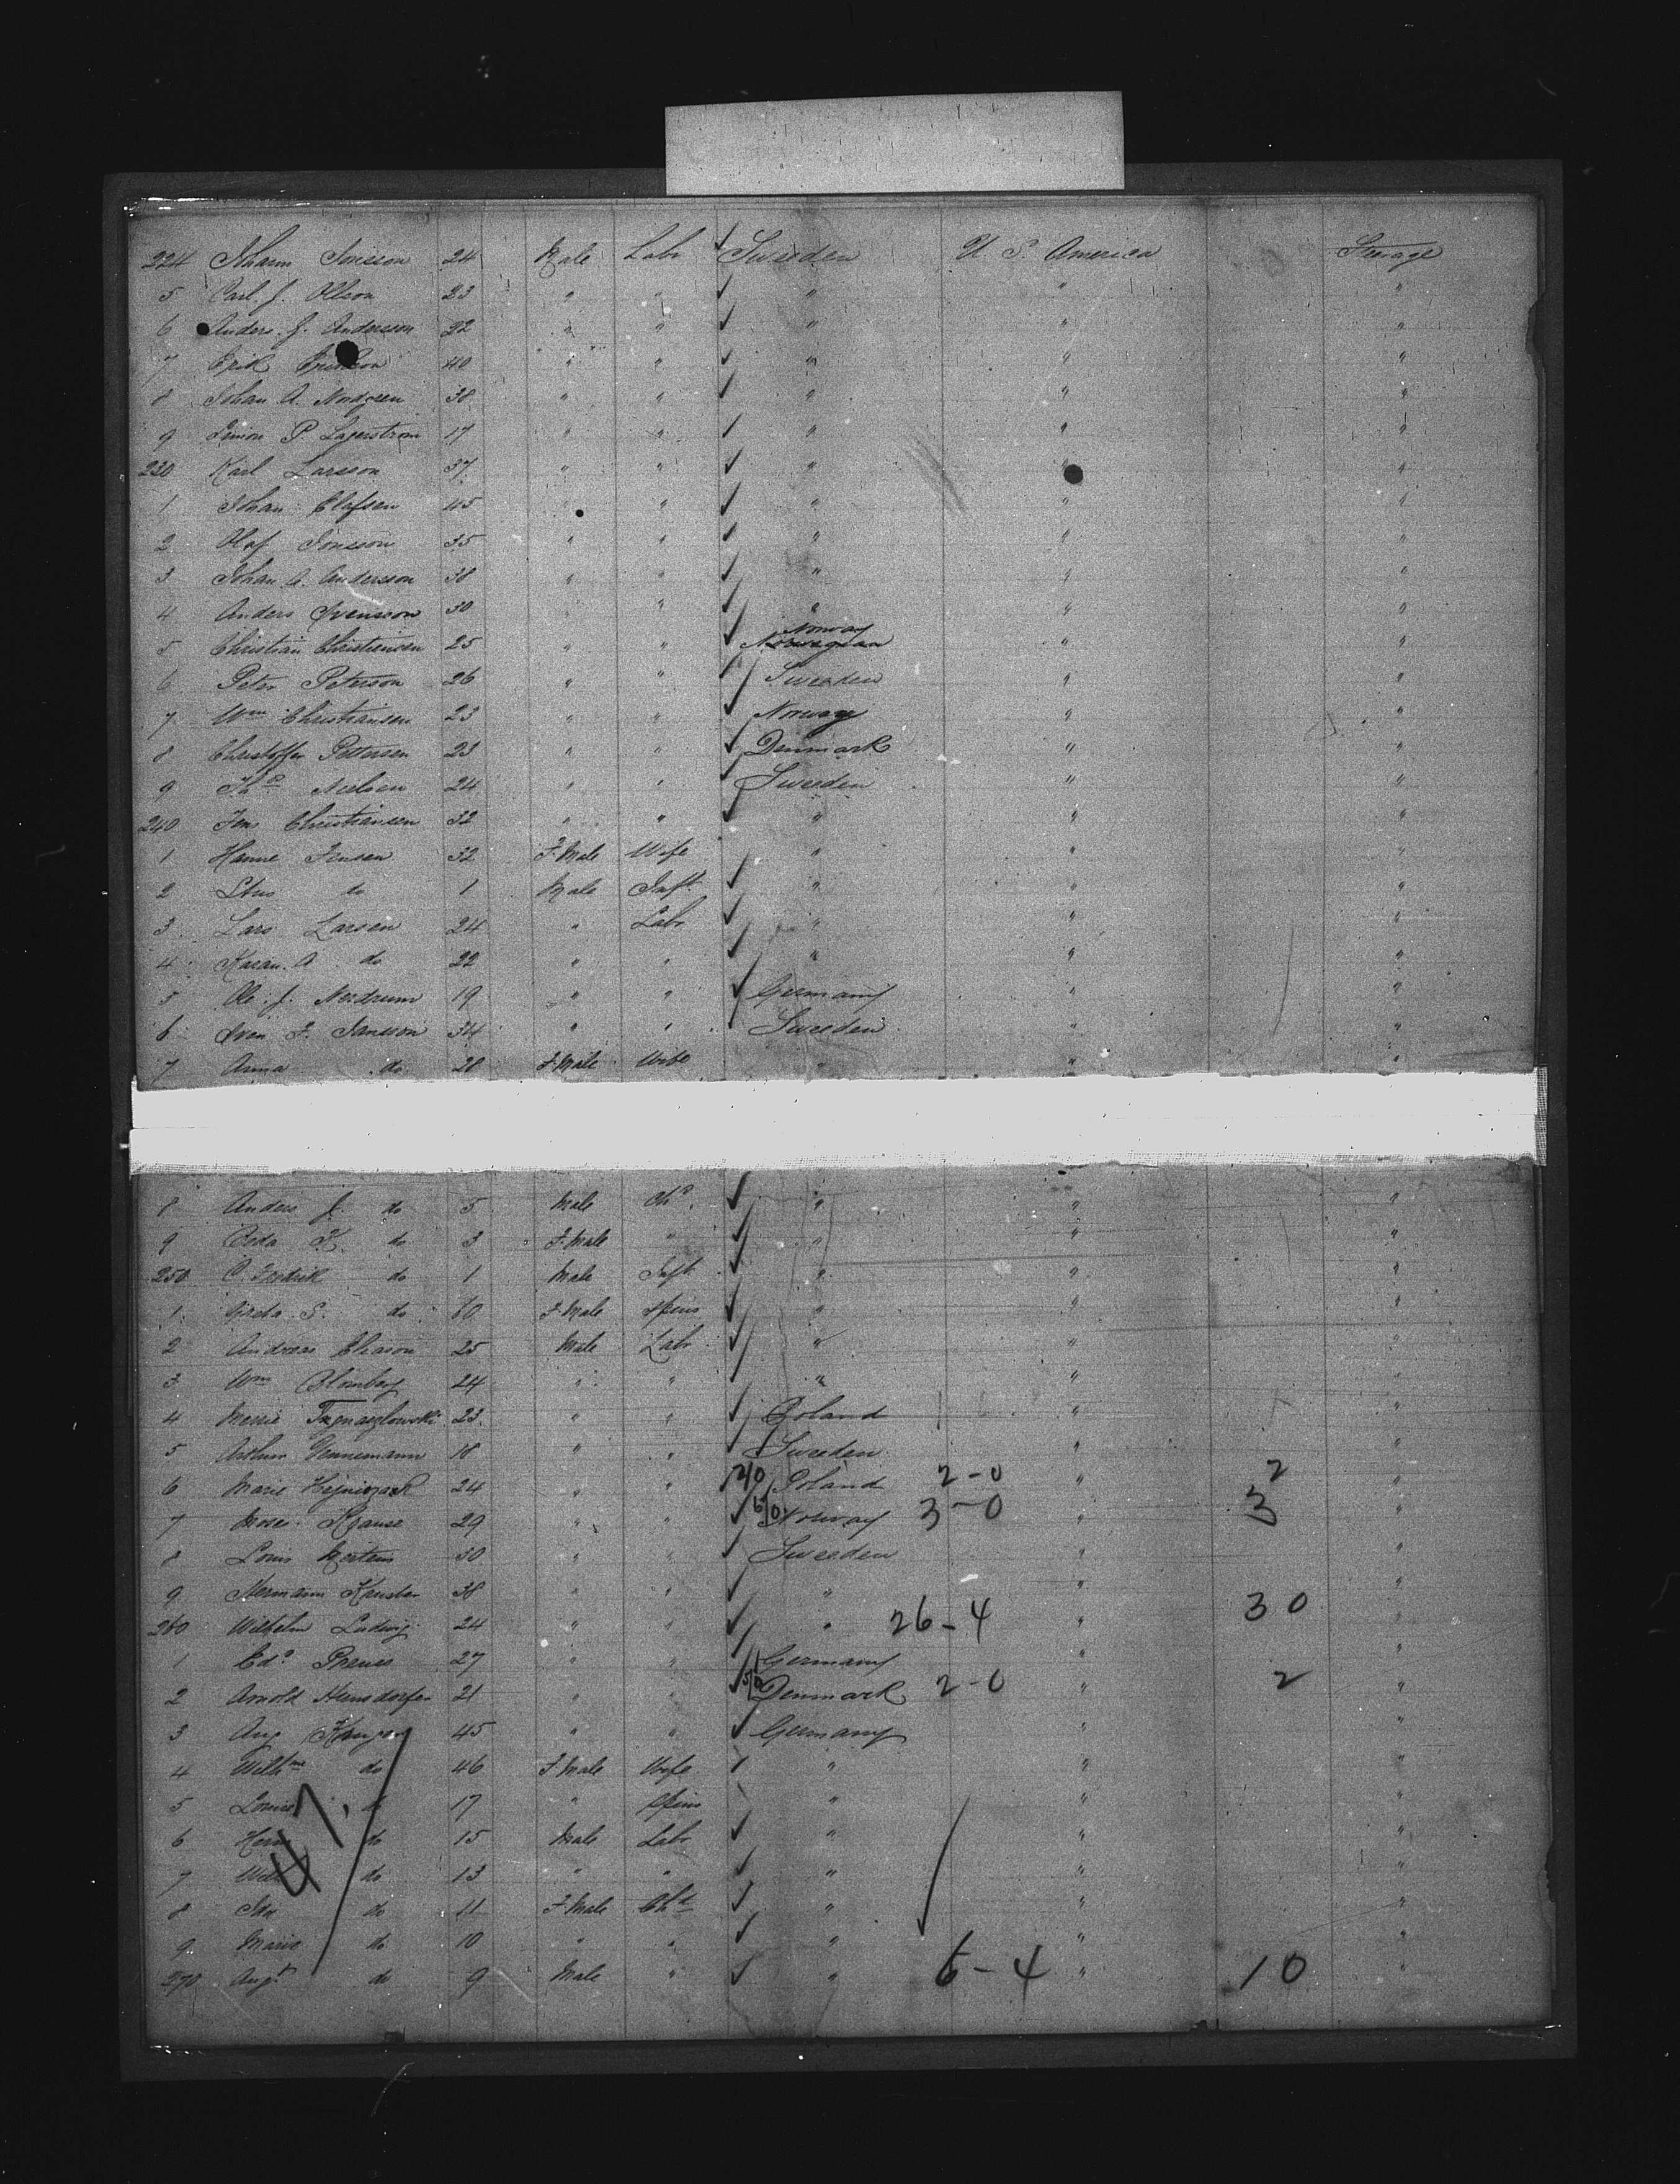 224 Johann Jonsson 24 Male Labr ✓ Sweden U S. America Steerage
5 Carl. J. Olleon 23 " " ✓ " " "
6 Anders. J. Andersson 22 " " ✓ " " "
7 Erik 40 " " ✓ " " "
8 Johan A. Nordgren 38 " " ✓ " " "
9 Simon P Lagerstrom 17 " " ✓ " " "
230 Karl Larsson 37 " " ✓ " " "
1 Johan Olafsen 45 " " ✓ " " "
2 Olaf Jonsson 35 " " ✓ " " "
3 Johan A. Andersson 38 " " ✓ " " "
4 Anders Svensson 30 " " ✓ " " "
Norway
5 Christian Christiensen 25 " " ✓ Norwegian " "
6 Peter Peterson 26 " " ✓ Sweden " "
7 Wm Christiansen 23 " " ✓ Norway " "
8 Christoffer Pettersen 23 " " ✓ Denmark " "
9 Thos Nielsen 24 " " ✓ Sweden " "
240 Jens Christiansen 32 " " ✓ " " "
1 Hanne Jensen 32 F.Male Wife " " "
2 do 1 Male Inft ✓ " " "
3 Lars Larsen 24 " Labr ✓ " " "
4 Karan. A do 22 " " ✓ " " "
5 Ole. J. Nerdrum 19 " " ✓ Germany " "
6 Sven F. Jansson 34 " " Sweden " "
7 Anna do 28 F.Male Wife " " "
8 Anders J. do 5 Male Chd ✓ " " "
9 Beda K. do 3 F.Male " ✓ " " "
250 C. Fredrik do 1 Male Inft ✓ " " "
1 Greta S. do 60 F.Male Spins ✓ " " "
2 Andreas Eliason 25 Male Labr ✓ " " "
3 Wm Blomberg 24 " " " " "
4 23 " " ✓ Poland " "
5 Arthur Vennemann 18 " " Sweden " "
6 Marie 24 " " 2/0 Poland 2-0 " 2 "
7 Moses Krause 29 " " ✓ 6/0 Norway 3-0 " 3 "
8 Louis Mertens 30 " " ✓ Sweden " "
9 Hermann 38 " " ✓ " " "
260 Wilhelm Ludwig 24 " " ✓ " 26-4 " 30 "
1 Edd Preuss 27 " " Germany " "
2 Arnold 21 " " ✓ Denmark 2-0 " 2 "
3 Aug Kruger 45 " " ✓ Germany " "
4 Wilhme do 46 F.Male Wife ✓ " " "
5 Louise do 17 " Spins " " "
6 do 15 Male Labr ✓ " " "
7 do 13 " " ✓ " " "
8 Ida do 11 F.Male Chd ✓ " " "
9 Marie do 10 " " ✓ " " "
270 Augt do 9 Male " ✓ " 6-4 " 10 "
47.